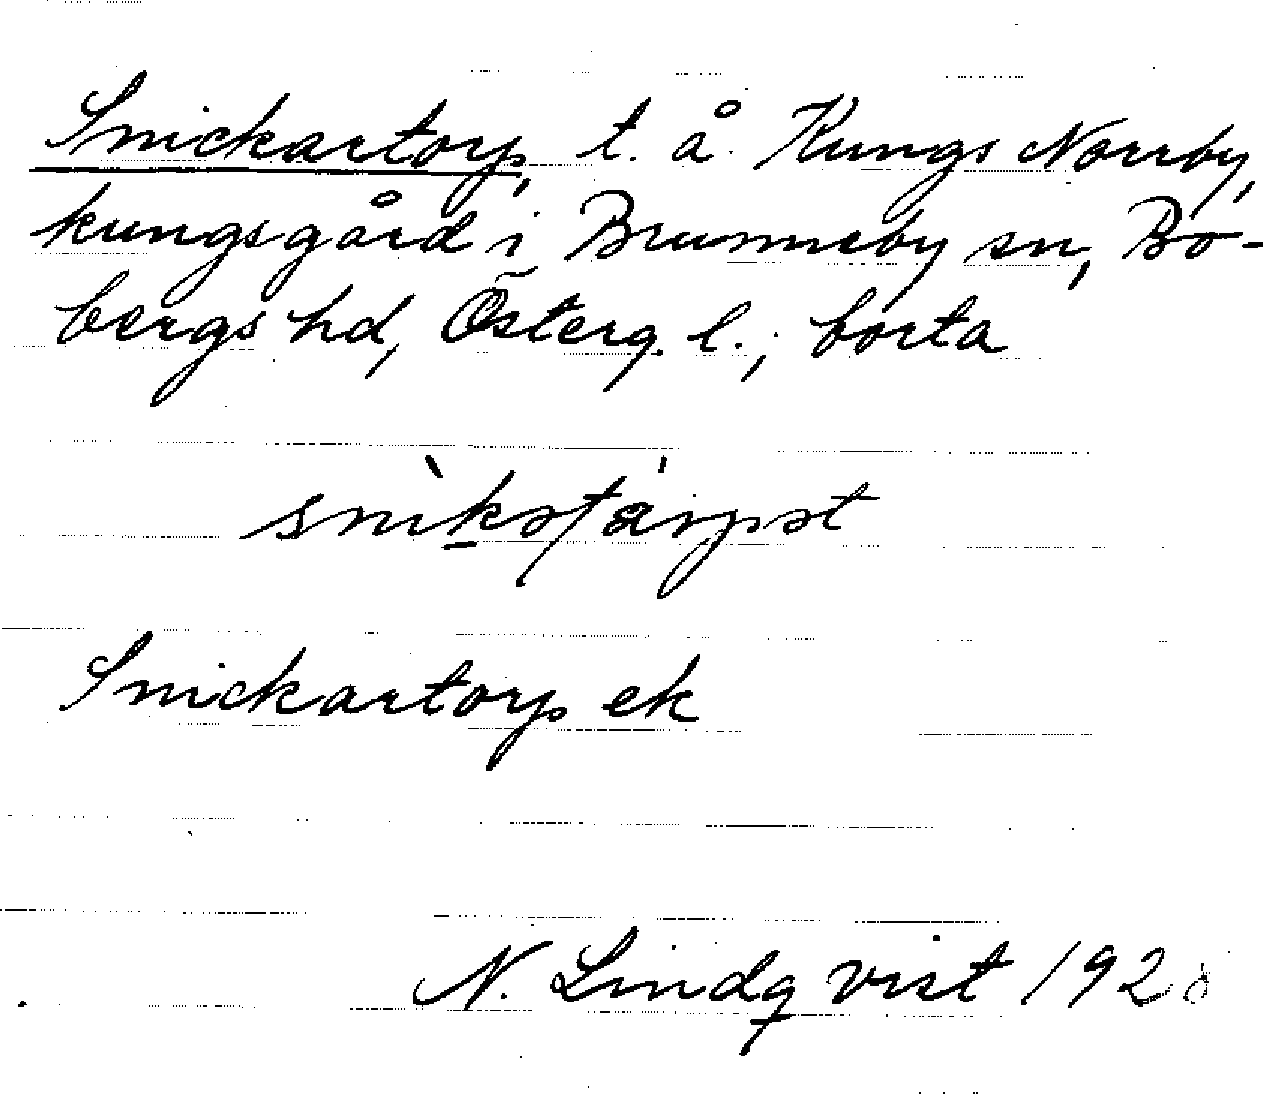 Snickartorp, t. å. Kungs Norrby,
kungsgård i Brunneby sn, Bo-
bergs hd, Österg. l.; borta
Snickartorp ek
N. Lindqvist 192